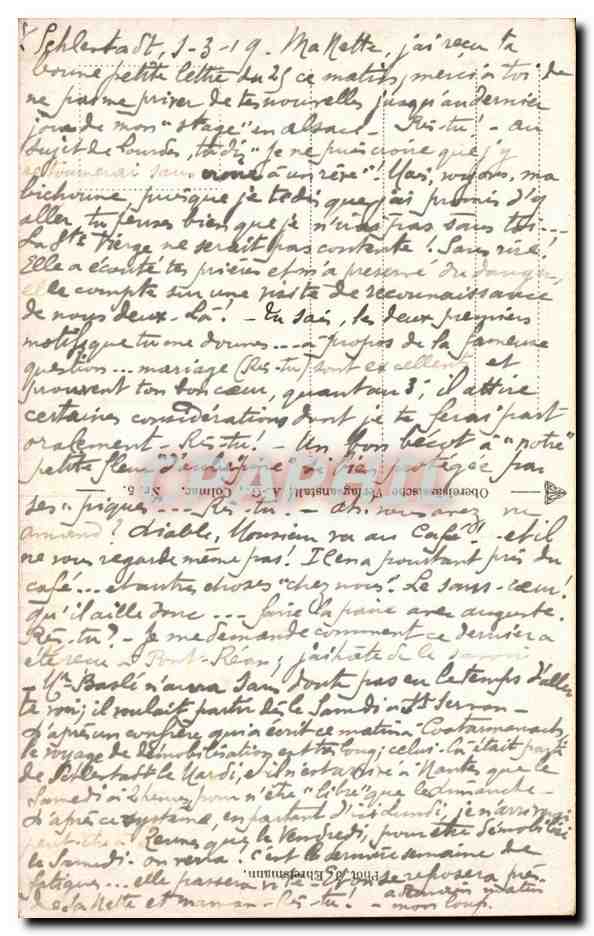 Schlestadt, 1-3-19. Ma Nette, j'ai reçu ta
bonne petite lettre du 25 ce matin, merci à toi de
ne pas me priver de tes nouvelles jusqu'au dernier
jour de mon "stage" en Alsace - Ris-tu! - au
sujet de Lourdes, tu dis "Je ne puis croire que j'y
retournerai sans croire à un rêve"! Mais, voyons, ma
bichonne puisque je te dis que j'ai promis d'y
aller tu penses bien que je n'irai pas sans toi...
La Ste Vierge ne serait pas contente! Sans rire!
Elle a écouté tes prières et m'a préservé du danger,
elle compte sur une visite de reconnaissance
de nous deux-là! - Tu sais, les deux premiers
motifs que tu me donnes... à propos de la fameuse
question... mariage (Ris-tu) sont excellents et
prouvent ton bon cœur, quant au 3e, il attire
certaines considérations dont je te ferai part
oralement - Ris-tu! - Un bon bécot à "notre"
petite fleur d'aubépine si bien protégée par
ses "piques"... Ris-tu - Ah! vous avez vu
Armand? Diable, Monsieur va au Café!! et il
ne vous regarde même pas! Il en a pourtant pris du
café... et autres choses "chez nous". Le sans-cœur!
qu'il aille donc... faire la paire avec Auguste.
Ris-tu? - Je me demande comment ce dernier a
été reçu à Pont-Réan, j'ai hâte de le savoir
- Mr Baslé n'aura sans doute pas eu le temps d'aller
te voir; il voulait partir dès le Samedi à St Servan -
D'après un confrère qui a écrit ce matin à
le voyage de démobilisation est très long; celui-là était parti
de Schlestadt le Mardi, et il n'est arrivé à Nantes que le
Samedi à 2 heures pour n'être "libre" que le dimanche -
D'après ce système, en partant d'ici Lundi, je n'arriverai
peut-être à Rennes que le Vendredi, pour être démobilisé
le Samedi. On verra! C'est la dernière semaine de
fatigues... elle passera vite - Et on se reposera près
de sa Nette et maman - Ris-tu! - à demain matin
mon loup.
Oberelsässische Verlagsanstalt A.-G., Colmar. Nr. 5.
Phot. J. Ehretsmann.
CPAPHIL